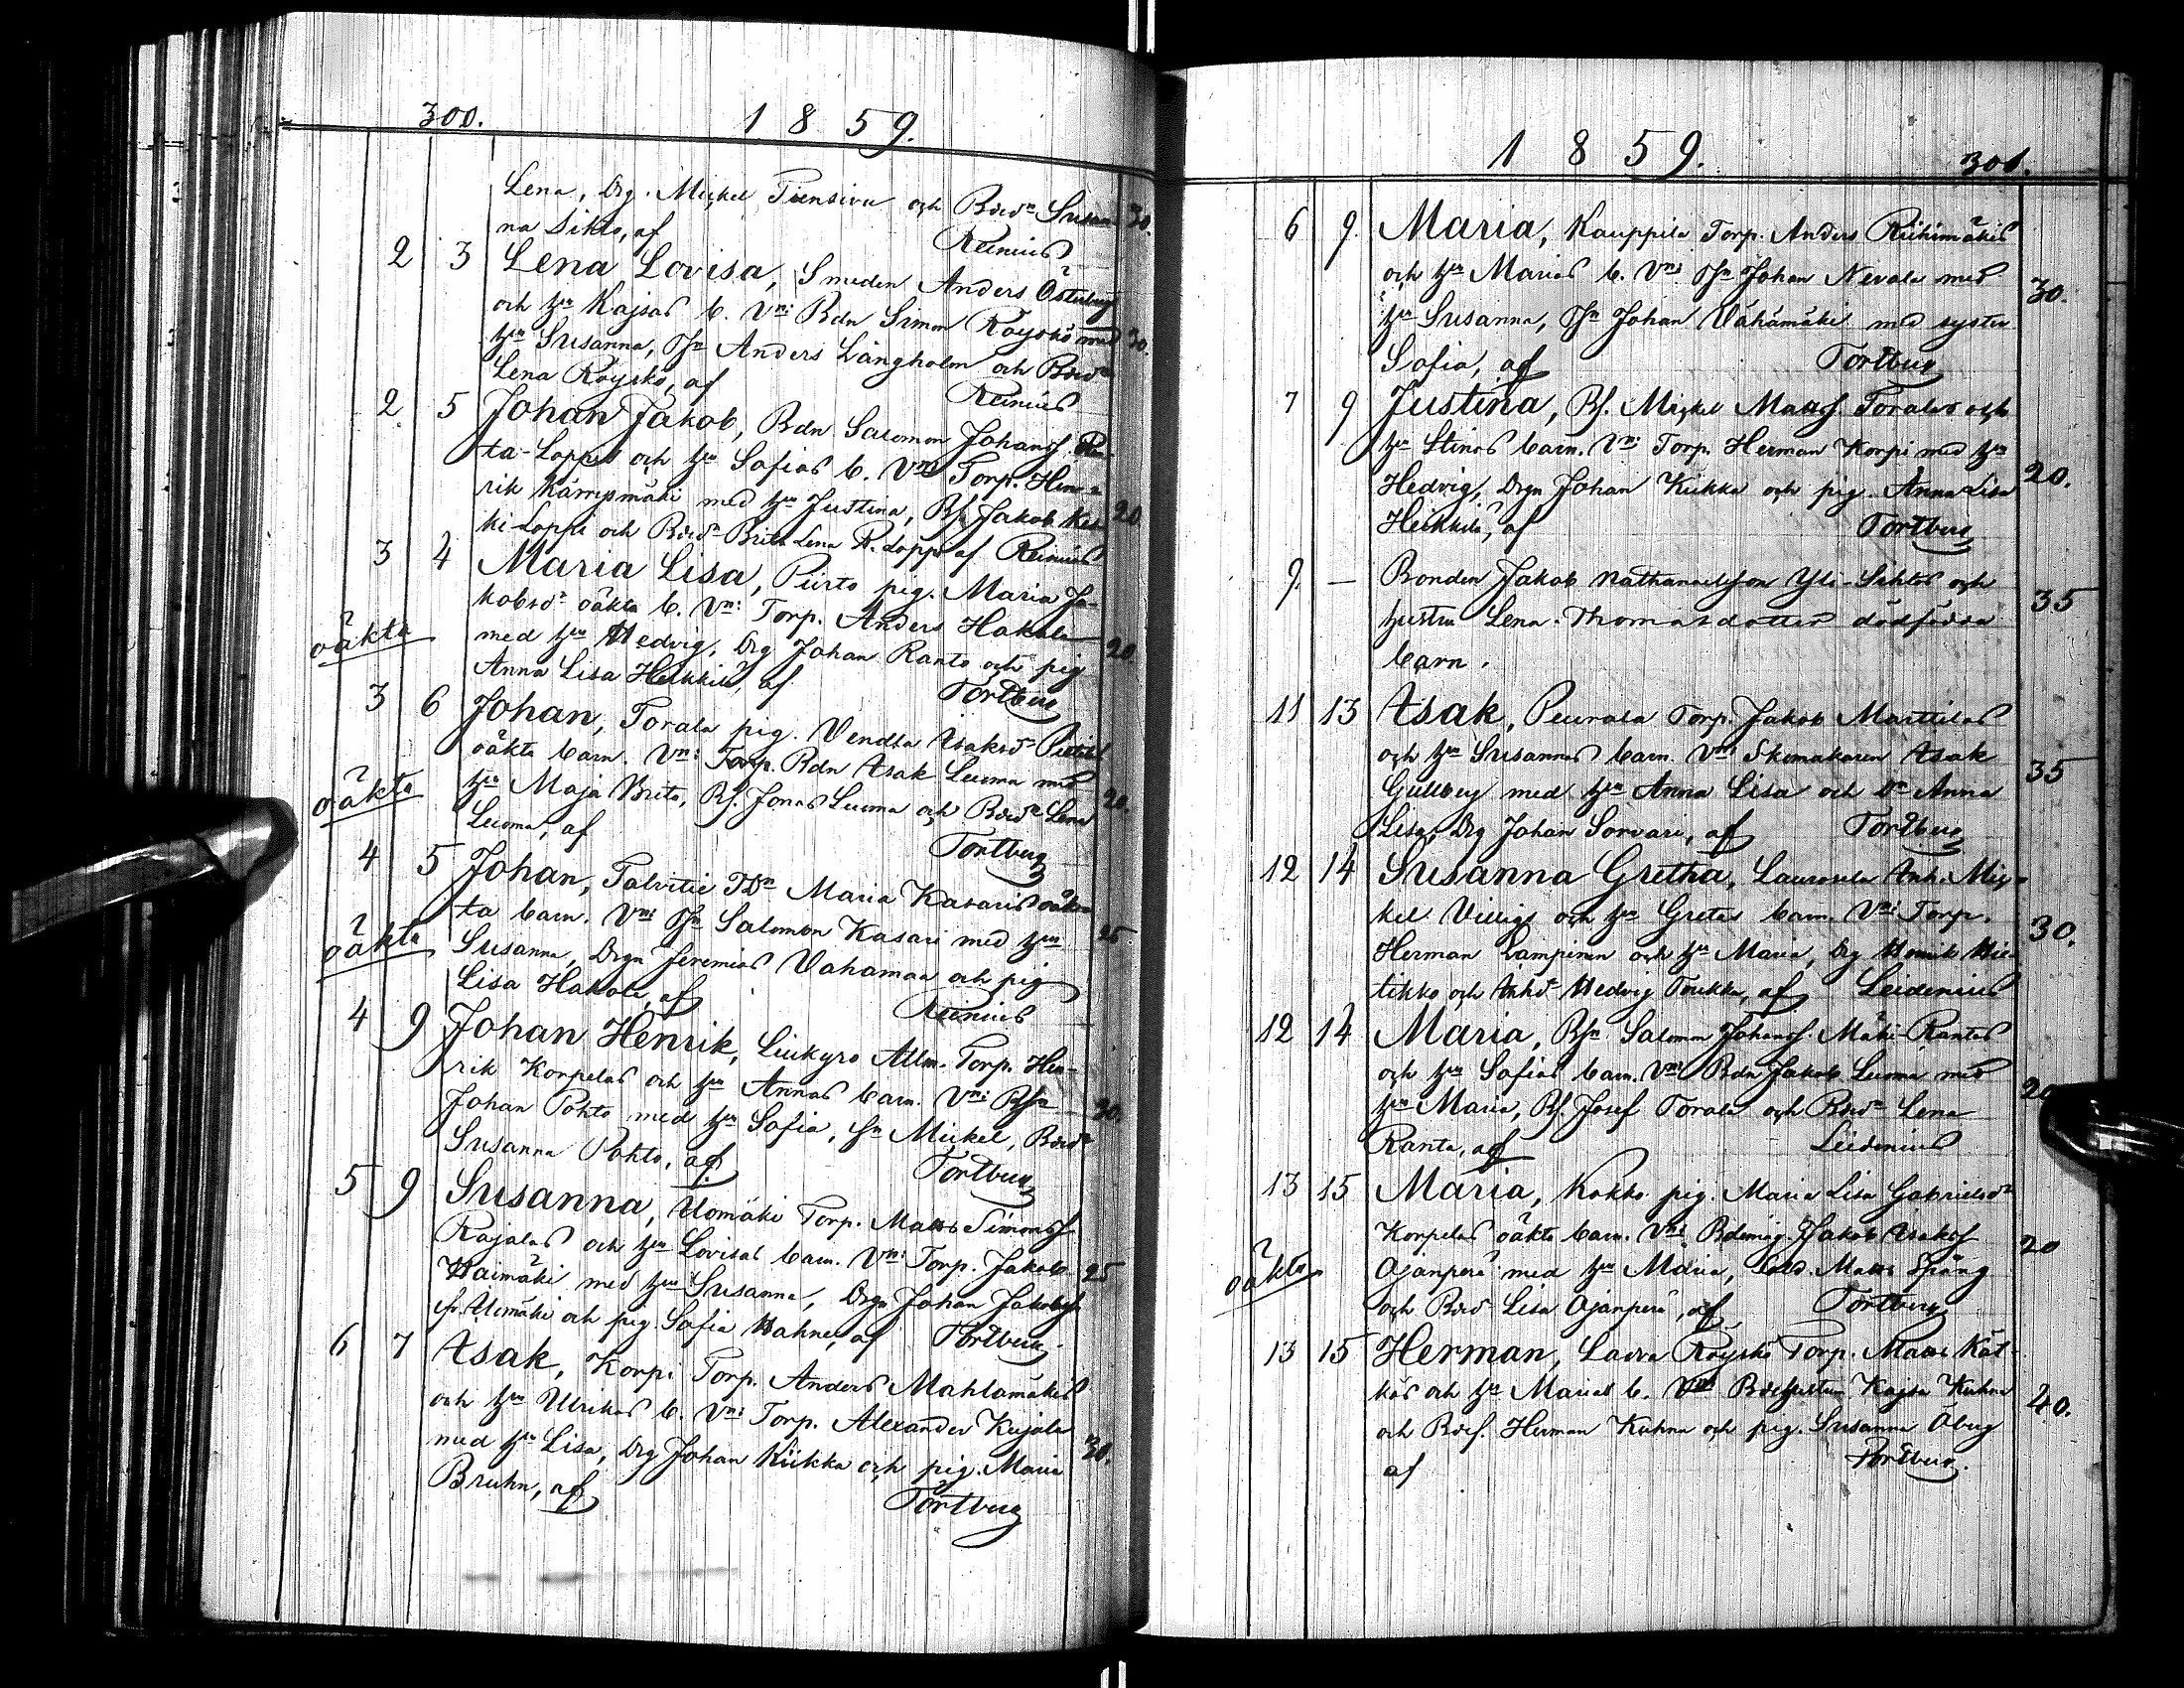 300. 1859.
Lena, Drg. Mickel Piensivu och Bdsdr Susan- 30.
na Sikto, af Reinius
2 3 Lena Lovisa, Smeden Anders Österberg
och hu Kajsas b. Vni Bdn Simon Röyskö med 30.
hu Susanna, Jn Anders Långholm och Bdsdr
Lena Röyskö, af Reinius
2 5 Johan Jakob, Bdn Salomon Johanss. Ran-
ta-Loppis och hu Sofias b. Vni Torp. Hen-
rik Kämpsmäki med hu Justina, Bs. Jakob Kes- 20.
ki-Loppi och Bdsdr Brita Lena R. Loppi af Reinius
3 4 Maria Lisa, Piirto pig. Maria Ja-
kobsdr oäkta b. Vni: Torp. Anders Hakala
oäkta med hu Hedvig, Drg Johan Ranto och pig 20.
Anna Lisa Heikkilä, af Tortberg
3 6 Johan, Torala pig. Vendla Isaksdr
oäkta barn. Vni: Torp. Bdn Isak Luoma med
oäkta hu Maja Brita, Bs. Jonas Luoma och Bdsdr Lena 20.
Luoma, af Tortberg
4 5 Johan, Talvitie TDr Maria Kasaris oäk-
ta barn. Vni Jn Salomon Kasari med hu 25
oäkta Susanna, Drgn Jeremias Vahamaa och pig
Lisa Hakola, af Reinius
4 9 Johan Henrik, Liukyro Allm. Torp. Hen-
rik Korpelas och hu Annas barn. Vni: Bsn
Johan Pohto med hu Sofia, sn Mickel, Bdsdr 30.
Susanna Pohto, af. Tortberg
5 9 Susanna, Uomäki Torp. Matts Simonss.
Rajalas och hu Lovisas barn. Vni: Torp. Jakob 25
Haimäki med hu Susanna, Drgn Johan Jakobss.
Uomäki och pig. Sofia Hahne, af Tortberg
6 7 Isak, Korpi Torp. Anders Mahlamäkis
och hu Ulrikas b. Vni: Torp. Alexander Kujala
med hu Lisa, Drg Johan Kiikka och pig. Maria 30.
Bruhn, af Tortberg
1859. 301.
6 9 Maria, Kauppila Torp. Anders Riihimäkis
och hu Marias b. Vni. Jn Johan Nevala med 30.
hu Susanna, Jn Johan Vähämäki med syster
Sofia, af Tortberg
7 9 Justina, Bs. Mickel Matss. Toralas och
hu Stinas barn. Vni Torp. Herman Korpi med hu
Hedvig, Drgn Johan Kiikka och pig. Anna Lisa 20.
Heikkilä, af Tortberg
9 — Bonden Jakob Nathanaelsson Yli-Sihtos och 35
hustru Lena Thomasdotters dödfödda
barn.
11 13 Isak, Peurala Torp. Jakob Marttilas
och hu Susannas barn. Vni Skomakaren Isak 35
Gullberg med hu Anna Lisa och Dr Anna
Lisa, Drg Johan Sorvari, af Tortberg
12 14 Susanna Gretha, Laurosela Inh. Mic-
kel Villigs och hu Gretas barn. Vni Torp. 30.
Herman Lampinen och hu Maria, Drg Henrik Hie-
tikko och Inhdr Hedvig Toukka, af Leidenius
12 14 Maria, Bsn Salomon Johanss. Mäki-Rantas
och hu Sofias barn. Vni Bdn Jakob Luoma med
hu Maria, Bs. Josef Torala och Bdsdr Lena 20
Ranta, af Leidenius
13 15 Maria, Kokko pig. Maria Lisa Gabrielsdr
Korpelas oäkta barn. Vni: Jakob Isakss. 20
oäkta Ojanperä med hu Maria, Sold. Matts Spång
och Bdsdr Lisa Ojanperä, af Tortberg
13 15 Herman, Lavra Röyskö Torp. Matts Kät-
kös och hu Marias b. Vni Bdehustru Kajsa Kuhna 40.
och Bdes. Herman Kuhna och pig. Susanna Öberg
af Tortberg.